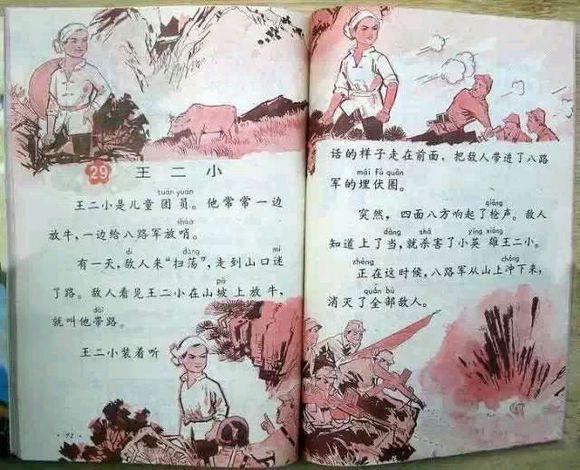 29 王二小
tuán yuán
王二小是儿童团员。他常常一边
shào
放牛,一边给八路军放哨。
dí dàng mí
有一天,敌人来“扫荡”,走到山口迷
pō
了路。敌人看见王二小在山坡上放牛,
dài
就叫他带路。
王二小装着听
·92·
话的样子走在前面,把敌人带进了八路
mái fú quān
军的埋伏圈。
qiāng
突然,四面八方响起了枪声。敌人
dàng shā yīng xióng
知道上了当,就杀害了小英雄王二小。
zhèng chōng
正在这时候,八路军从山上冲下来,
quán bù
消灭了全部敌人。